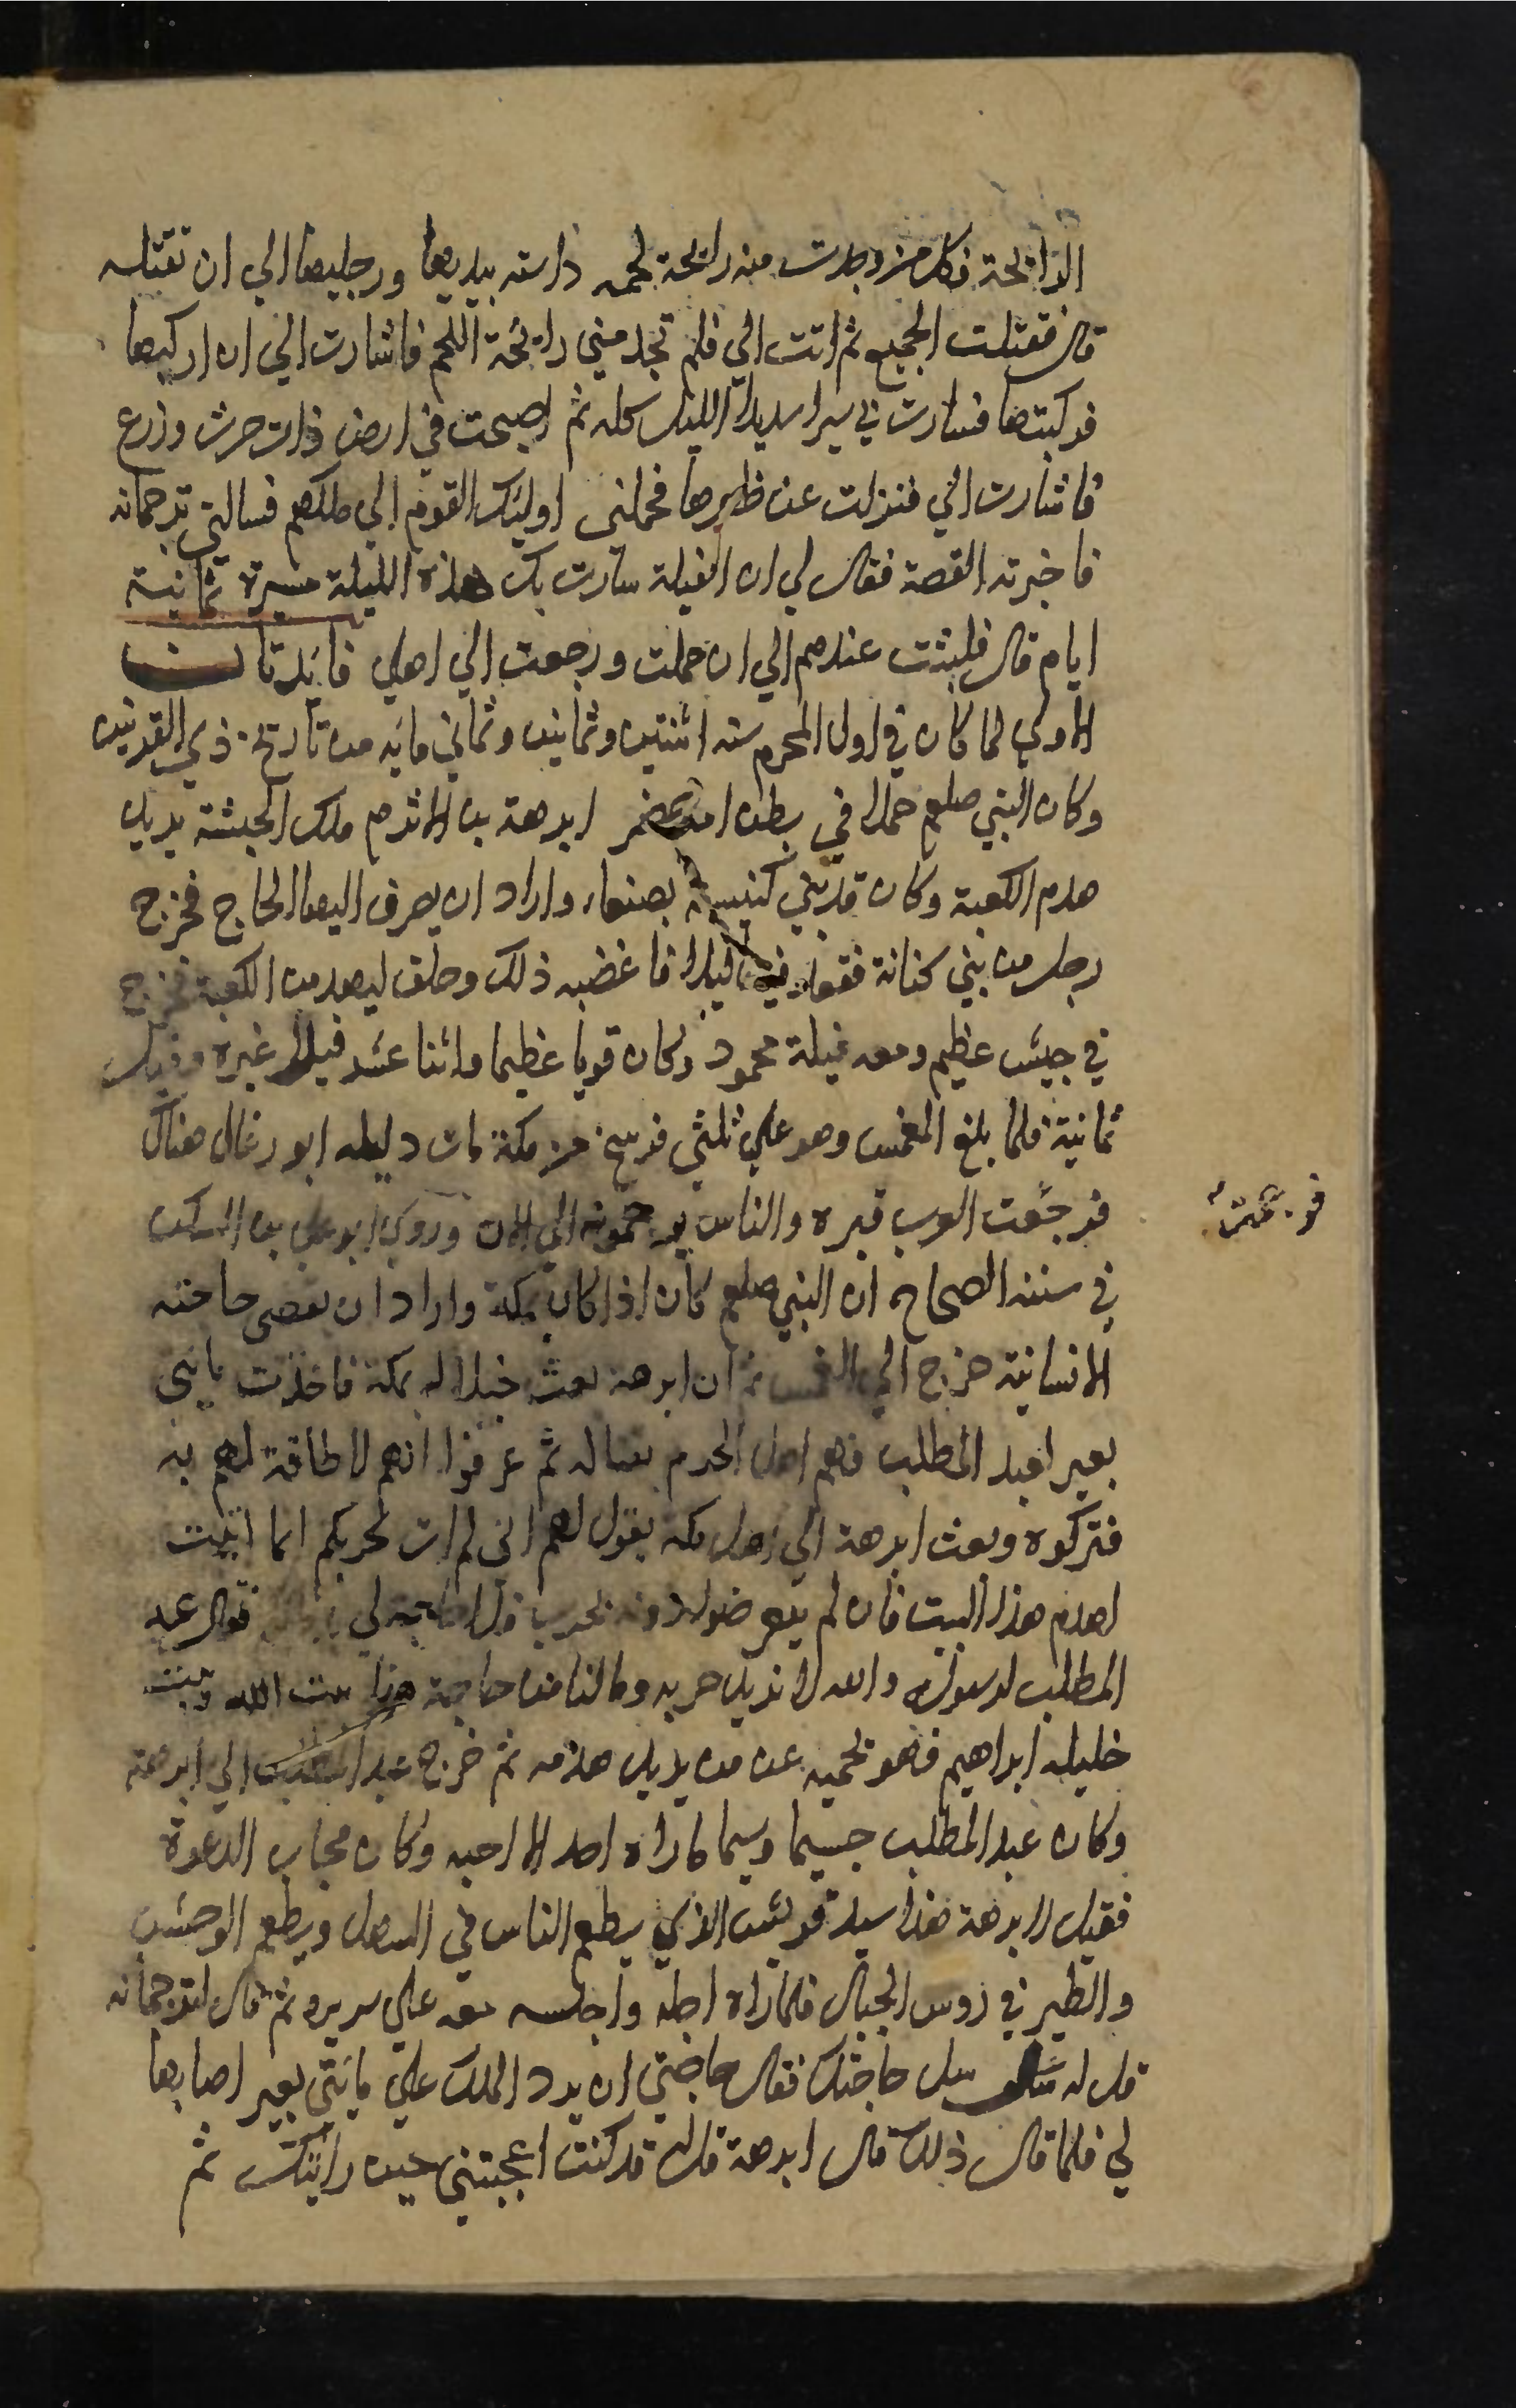 الرايحة فكل من وجدت منه رايحة لحمه داسته بيديها ورجليها الي ان تقتله
قال فقتلت الجميع ثم اتت الي فلم تجد مني رايحة اللحم فاشارت الي ان اركبها
فركبتها فسارت بي سيرا شديدا الليل كله ثم اصبحت في ارض ذات حرث وزرع
فاشارت الي فنزلت عن ظهرها فحملني اوليك القوم الي ملكهم فسالني ترجمانه
فاخبرته القصة فقال لي ان الفيلة سارت بك هذه الليلة مسيرة ثمانية
ايام قال فلبثت عندهم الي ان حملت ورجعت الي اهلي فايدتان
الاولي لما كان في اول المحرم سنه اثنتين وثمانين وثماني مايه من تاريخ ذي القرنين
وكان النبي صلعم حملا في بطن امه حضر ابرهة بن الاشرم ملك الحبشة يريد
هدم الكعبة وكان قد بني كنيسة بصنعاء واراد ان يصرف اليها الحاج فخرج
رجل من بني كنانة فقعد فيها ليلا فاغضبه ذلك وحلف ليهدمن الكعبة فخرج
في جيش عظيم ومعه فيلة محمود وكان قويا عظيما واثنا عشر فيلا غيره وقيل
ثمانية فلما بلغ المغمس وهو علي ثلثي فرسخ من مكة مات دليله ابو رغال هناك
فرجمت العرب قبره والناس يرجمونه الي الان وروي ابو علي بن السكن
في سننه الصحاح ان النبي صلعم كان اذا كان بمكة واراد ان يقضي حاجته
الانسانية خرج الي المغمس ثم ان ابرهة بعث خيلا له بمكة فاخذت مايتي
بعير لعبد المطلب فهم اهل الحرم بقتاله ثم عرفوا انهم لا طاقة لهم به
فتركوه وبعث ابرهة الي اهل مكه يقول لهم اني لم ات لحربكم انما اتيت
اهدم هذا البيت فان لم تتعرضوا دونه بحرب فلا حاجة لي فقال عبد
المطلب لرسوله والله لا نريد حربه وما لنا منه حاجة هذا بيت الله وبيت
خليله ابراهيم فهو يحميه عن من يريد هدمه ثم خرج عبد المطلب الي ابرهة
وكان عبد المطلب جسيما وسيما ما راه احد الا احبه وكان مجاب الدعوة
فقيل لابرهة هذا سيد قريش الذي يطعم الناس في السهل ويطعم الوحش
والطير في روس الجبال فلما راه اجله واجلسه معه علي سريره ثم قال لترجمانه
قل له سل حاجتك فقال حاجتي ان يرد الملك علي مايتي بعير اصابها
لي فلما قال ذلك قال ابرهة قل له قد كنت اعجبتني حين رايتك ثم